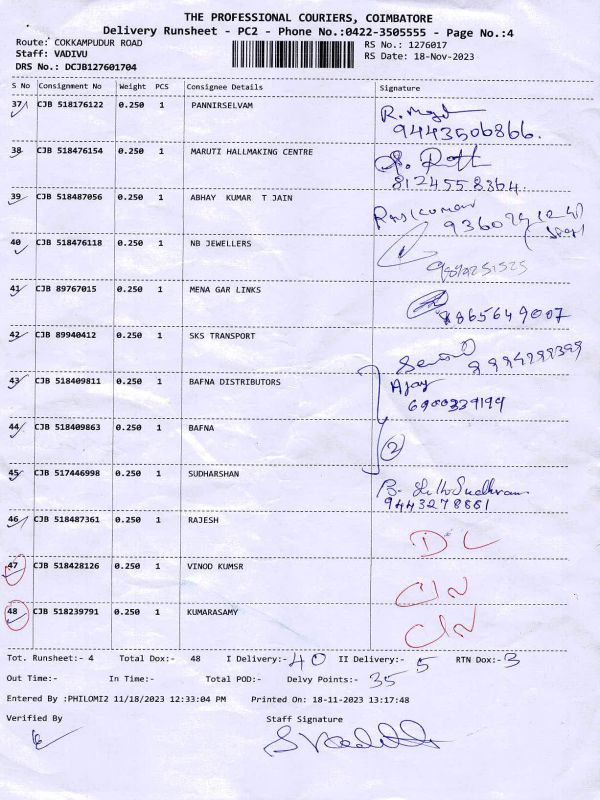 THE PROFESSIONAL COURIERS, COIMBATORE
Delivery Runsheet - PC2 - Phone No.:0422-3505555 - Page No.:4
Route: COKKAMPUDUR ROAD RS No.: 1276017
Staff: VADIVU RS Date: 18-Nov-2023
DRS No.: DCJB127601704
S No Consignment No Weight PCS Consignee Details Signature
37 CJB 518176122 0.250 1 PANNIRSELVAM
9443506866.
38 CJB 518476154 0.250 1 MARUTI HALLMAKING CENTRE
8124558364.
39 CJB 518487056 0.250 1 ABHAY KUMAR T JAIN Rajkumar
40 CJB 518476118 0.250 1 NB JEWELLERS
41 CJB 89767015 0.250 1 MENA GAR LINKS
7865649007
42 CJB 89940412 0.250 1 SKS TRANSPORT
43 CJB 518409811 0.250 1 BAFNA DISTRIBUTORS Ajay
6900339199
44 CJB 518409863 0.250 1 BAFNA 2
45 CJB 517446998 0.250 1 SUDHARSHAN
9443278861
46 CJB 518487361 0.250 1 RAJESH DL
47 CJB 518428126 0.250 1 VINOD KUMSR C/N
48 CJB 518239791 0.250 1 KUMARASAMY C/N
Tot. Runsheet:- 4 Total Dox:- 48 I Delivery:- 40 II Delivery:- 5 RTN Dox:- 3
Out Time:- In Time:- Total POD:- Delvy Points:- 35
Entered By :PHILOMI2 11/18/2023 12:33:04 PM Printed On: 18-11-2023 13:17:48
Verified By Staff Signature